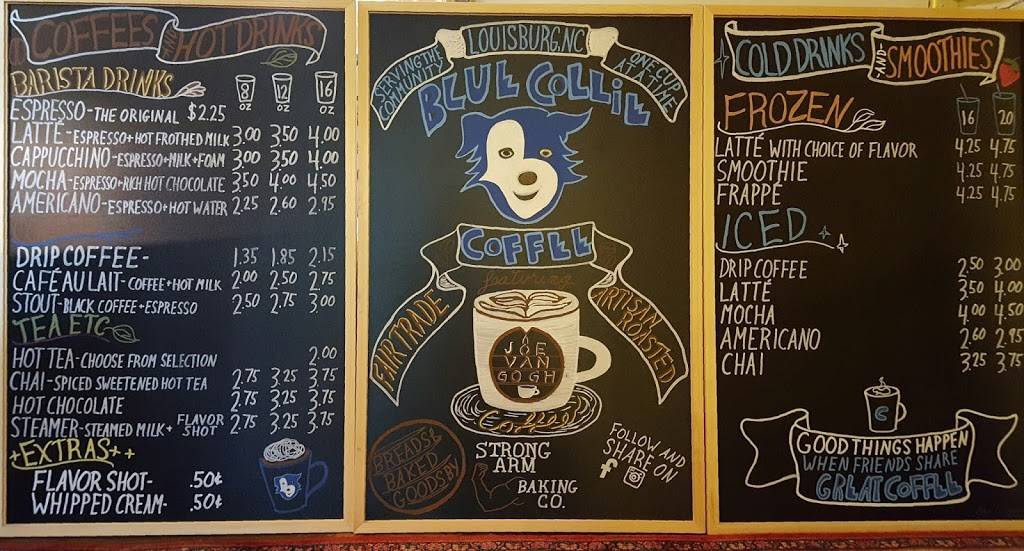 COFFEES
HOT DRINKS
BARISTA DRINKS 8 OZ 12 OZ 16 OZ
ESPRESSO - THE ORIGINAL $2.25
LATTÉ - ESPRESSO + HOT FROTHED MILK 3.00 3.50 4.00
CAPPUCCHINO - ESPRESSO + MILK + FOAM 3.00 3.50 4.00
MOCHA - ESPRESSO + RICH HOT CHOCOLATE 3.50 4.00 4.50
AMERICANO - ESPRESSO + HOT WATER 2.25 2.60 2.95
DRIP COFFEE - 1.35 1.85 2.15
CAFÉ AU LAIT - COFFEE + HOT MILK 2.00 2.50 2.75
STOUT - BLACK COFFEE + ESPRESSO 2.50 2.75 3.00
TEA ETC
HOT TEA - CHOOSE FROM SELECTION 2.00
CHAI - SPICED SWEETENED HOT TEA 2.75 3.25 3.75
HOT CHOCOLATE 2.75 3.25 3.75
STEAMER - STEAMED MILK + FLAVOR SHOT 2.75 3.25 3.75
+ EXTRAS + +
FLAVOR SHOT - .50¢
WHIPPED CREAM - .50¢
SERVING THE COMMUNITY
LOUISBURG, NC
ONE CUP AT A TIME
BLUE COLLIE
COFFEE
featuring
FAIR TRADE
ARTISAN ROASTED
JOE
VAN
GOGH
Coffee
BREADS &
BAKED
GOODS BY
STRONG
ARM
BAKING
CO.
FOLLOW AND
SHARE ON
f
COLD DRINKS
AND
SMOOTHIES
FROZEN 16 20
LATTÉ WITH CHOICE OF FLAVOR 4.25 4.75
SMOOTHIE 4.25 4.75
FRAPPÉ 4.25 4.75
ICED
DRIP COFFEE 2.50 3.00
LATTÉ 3.50 4.00
MOCHA 4.00 4.50
AMERICANO 2.60 2.95
CHAI 3.25 3.75
C
GOOD THINGS HAPPEN
WHEN FRIENDS SHARE
GREAT COFFEE